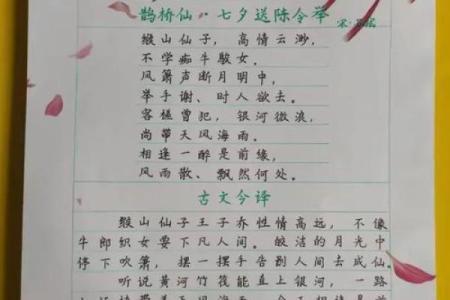 鹊桥仙·七夕送陈令举
宋·苏轼
缑山仙子，高情云渺，
不学痴牛騃女。
风箫声断月明中，
举手谢、时人欲去。
客槎曾犯，银河微浪，
尚带天风海雨。
相逢一醉是前缘，
风雨散、飘然何处。
古文今译
缑山仙子王子乔性情高远，不像
牛郎织女要下凡人间。皎洁的月光中
停下吹箫，摆一摆手告别人间去成仙。
听说黄河竹筏能直上银河，一路